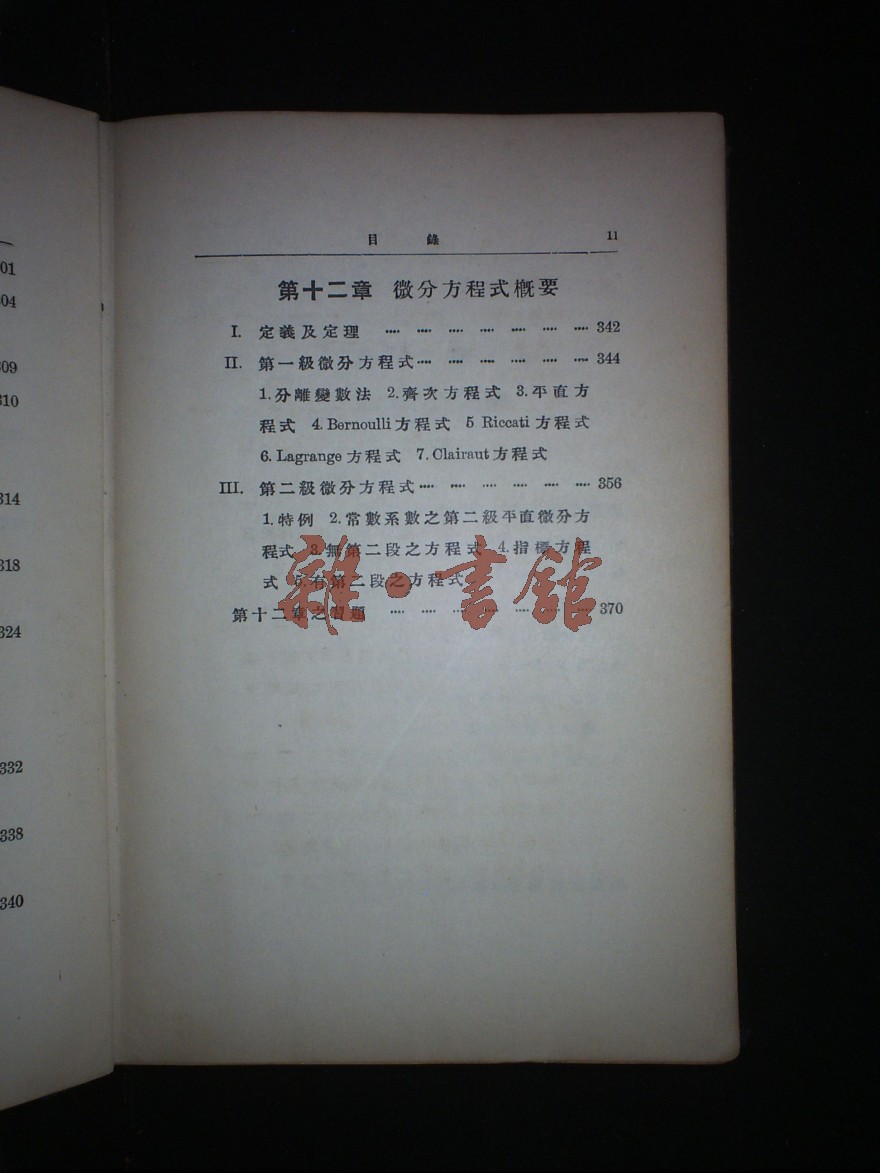 01
304
309
310
314
318
324
332
338
340
目 錄 11
第十二章 微分方程式概要
I. 定義及定理 ···· ···· ···· ···· ···· ···· ···· 342
II. 第一級微分方程式 ···· ···· ···· ···· ···· ···· 344
1.分離變數法 2.齊次方程式 3.平直方
程式 4.Bernoulli方程式 5 Riccati方程式
6.Lagrange方程式 7.Clairaut方程式
III. 第二級微分方程式 ···· ···· ···· ···· ···· ···· 356
1.特例 2.常數系數之第二級平直微分方
程式 3.無第二段之方程式 4.指標方程
式 5.有第二段之方程式
第十二章之習題 ···· ···· ···· ···· ···· ···· ···· 370
雜·書館